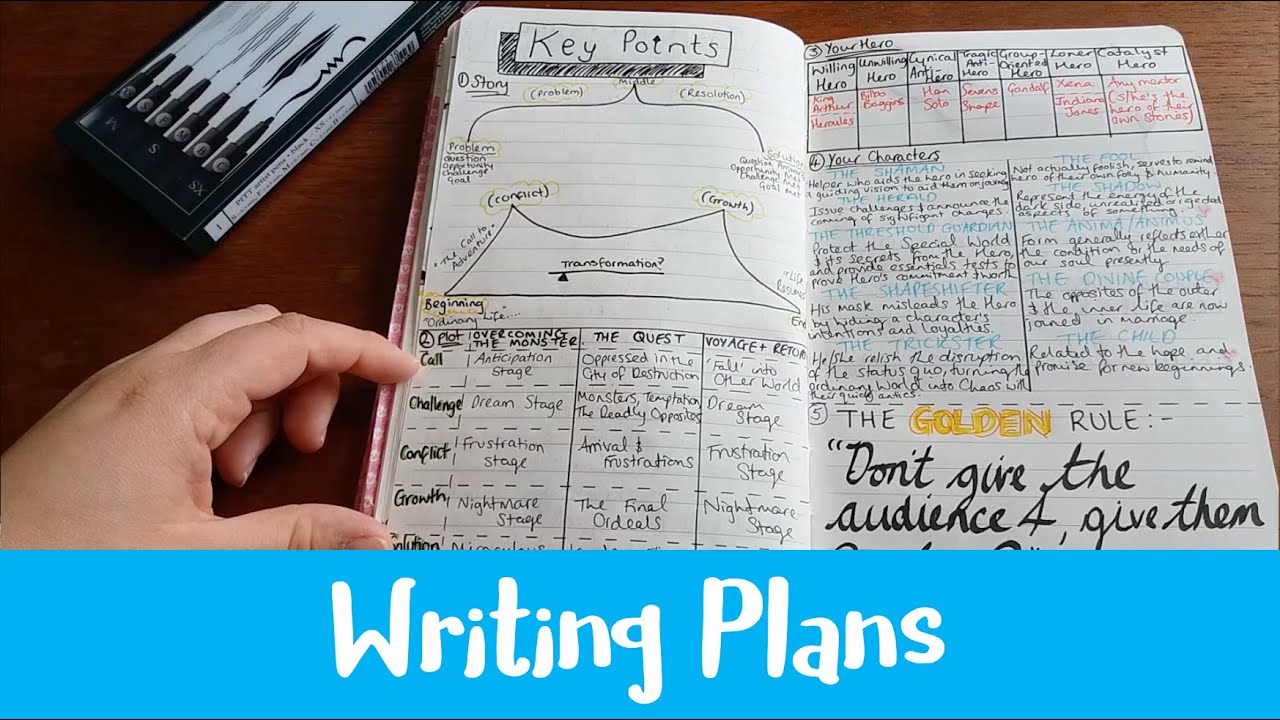 Key Points
① Story
Middle
(Problem)
(Resolution)
Problem
Question
Opportunity
Challenge
Goal
Solution
Question
Opportunity
Challenge met
Goal met
(Conflict)
(Growth)
"The Call to
Adventure"
Transformation?
"Life
Resumes
Beginning
"Ordinary Life"...
En
② Plot OVERCOMING THE MONSTER THE QUEST VOYAGE + RETUR
Call Anticipation Stage Oppressed in the City of Destruction 'Fall' into Other World
Challenge Dream Stage Monsters, Temptation, The Deadly Opposites Dream Stage
Conflict Frustration Stage Arrival & Frustrations Frustration Stage
Growth Nightmare Stage The Final Ordeals Nightmare Stage
olution
③ Your Hero
Willing Hero Unwilling Hero Cynical Anti-Hero Tragic Anti-Hero Group-Oriented Hero Loner Hero Catalyst Hero
King Arthur Bilbo Baggins Han Solo Severus Snape Gandalf Xena Any mentor
Hercules Indiana Jones (s/he's the hero of their own stories)
④ Your Characters
THE SHAMAN
Helper who aids the hero in seeking
a guiding vision to aid them on journey
THE HERALD
Issue challenges & announce the
coming of significant changes.
THE THRESHOLD GUARDIAN
Protect the Special World
& its secrets from the Hero,
and provide essential tests to
prove Hero's commitment & worth
THE SHAPESHIFTER
His mask misleads the Hero
by hiding a character's
intentions and loyalties.
THE TRICKSTER
He/she relish the disruption
of the status quo, turning the
ordinary World into Chaos with
their quirky antics.
THE FOOL
Not actually foolish, serves to remind
hero of their own folly & humanity.
THE SHADOW
Represent the energy of the
dark side, unrealized or rejected
aspects of something.
THE ANIMA/ANIMUS
Form generally reflects either
the condition or the needs of
our soul presently
THE DIVINE COUPLE
The opposites of the outer
& the inner life are now
joined in marriage.
THE CHILD
Related to the hope and
promise for new beginnings.
⑤ THE GOLDEN RULE:-
"Don't give the
audience 4, give them
Writing Plans